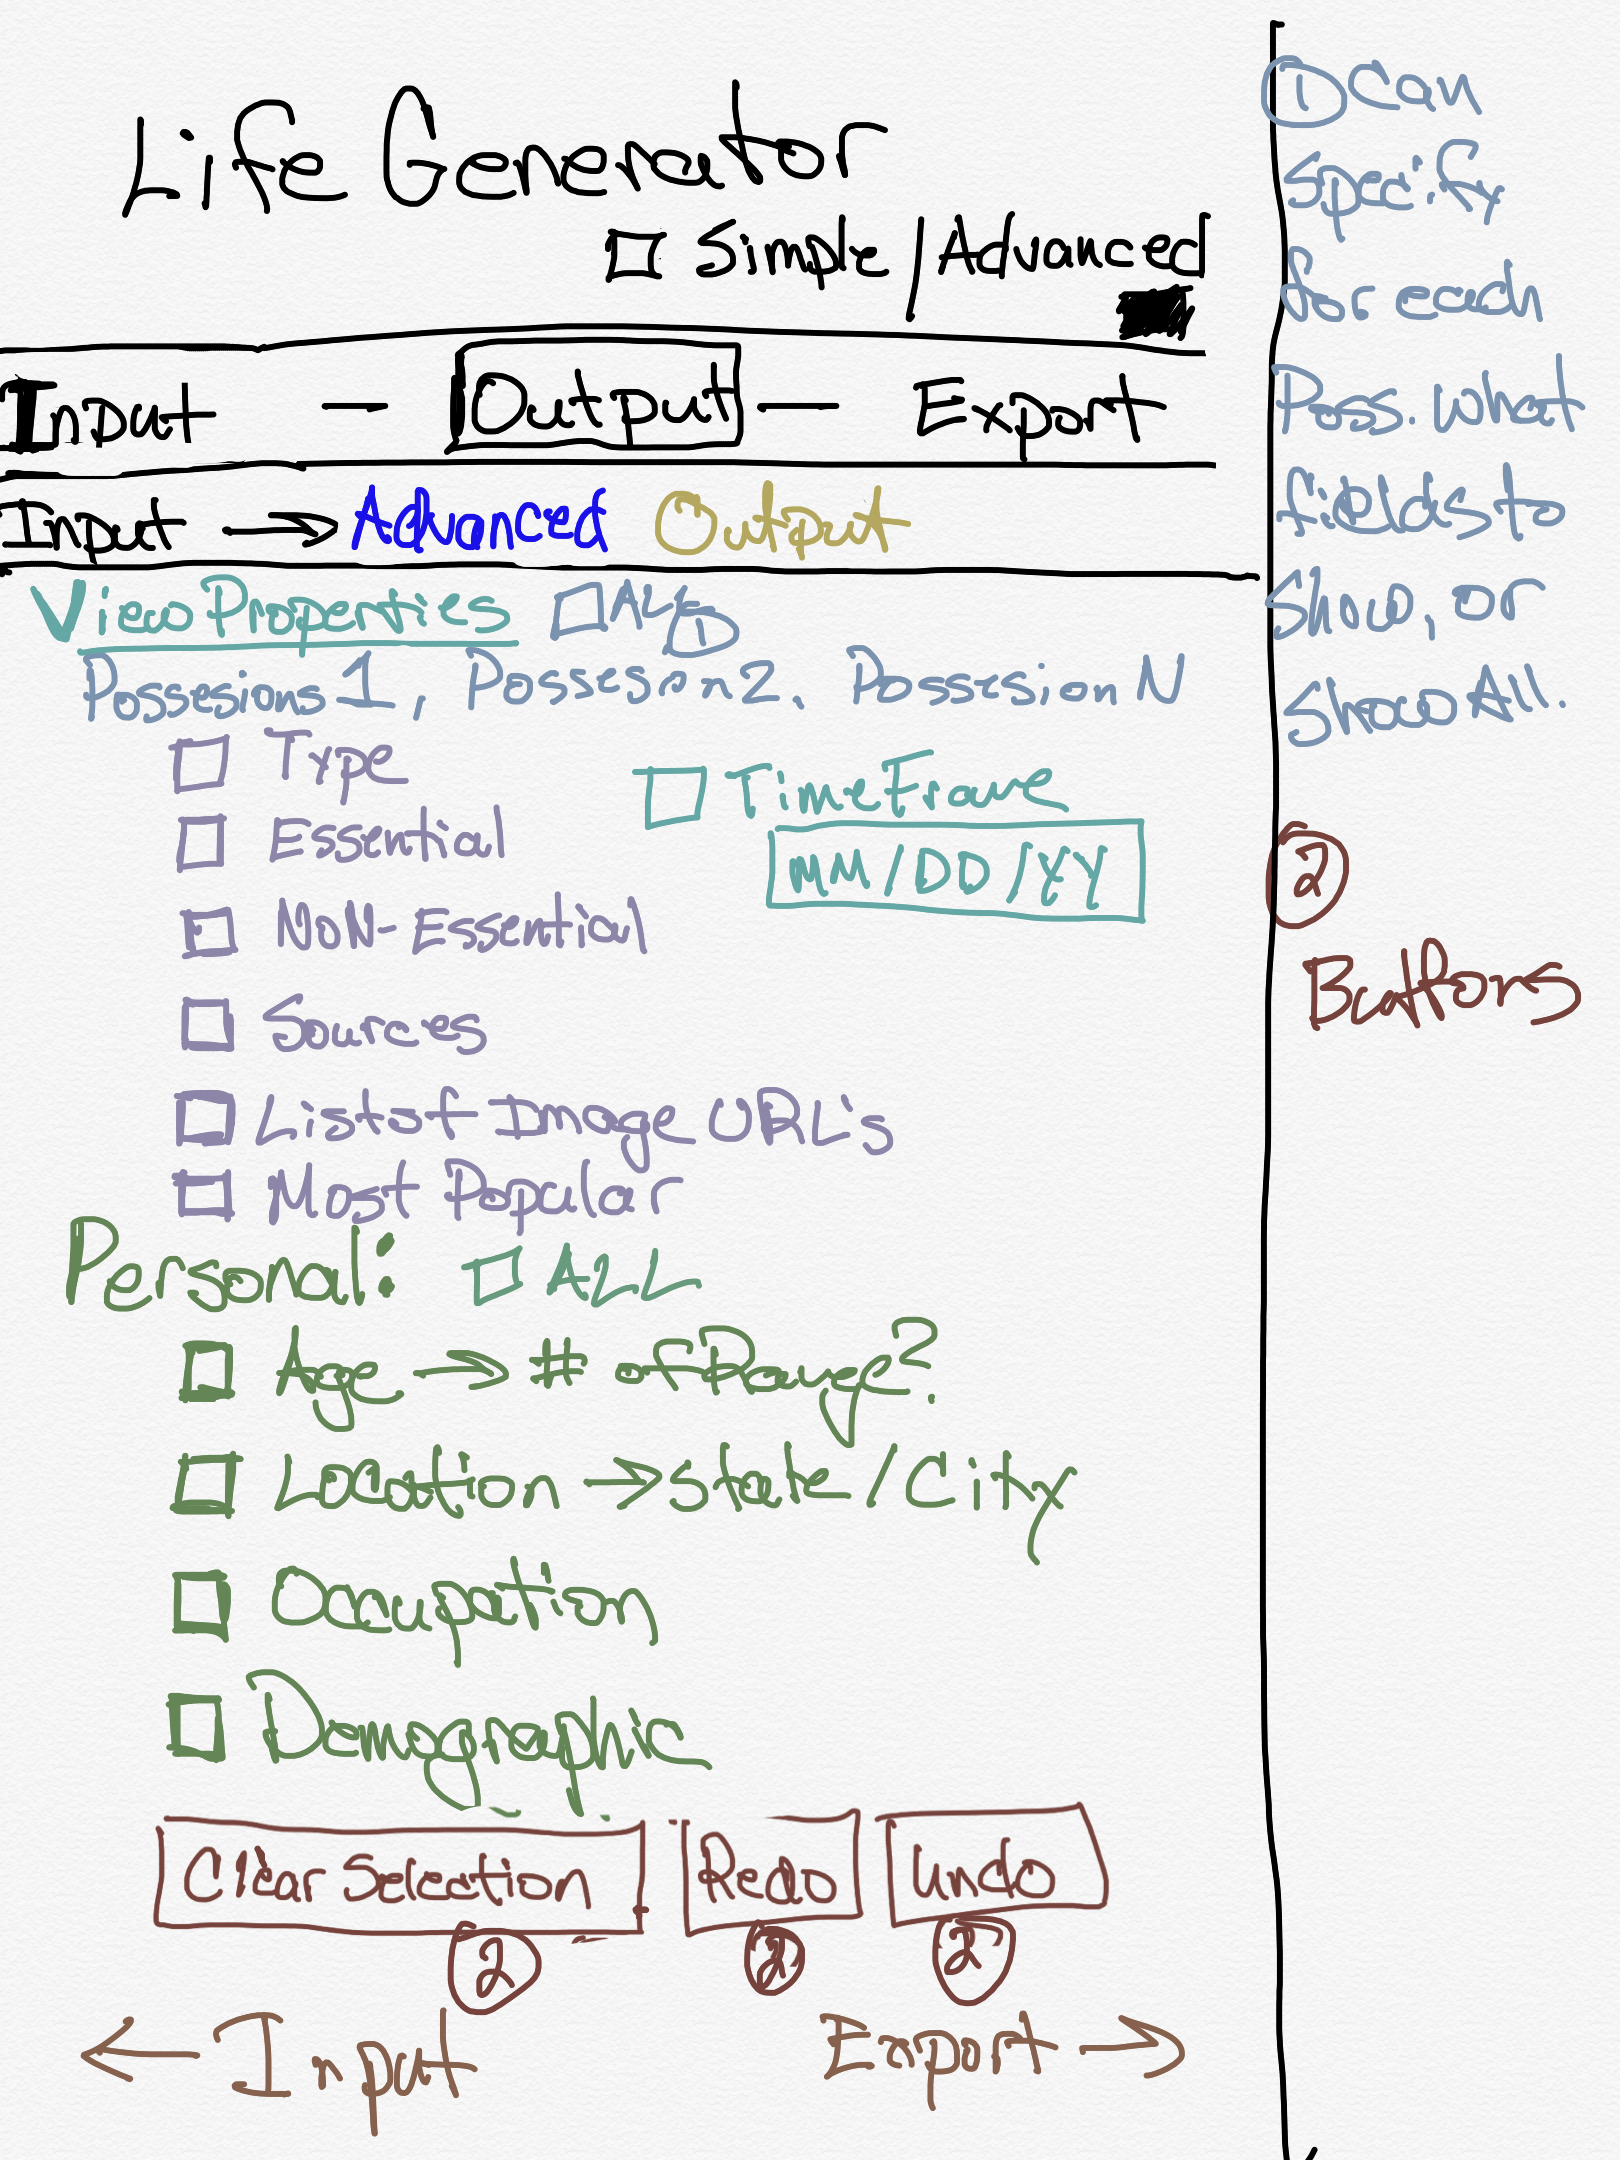 Life Generator
Simple / Advanced
Input — Output — Export
Input → Advanced Output
View Properties ALL ①
Possesions 1, Possesion 2, Possesion N
Type
TimeFrame
Essential
MM/DD/YY
NoN-Essential
Sources
List of Image URL's
Most Popular
Personal: ALL
Age → # of Range?
Location → State/City
Occupation
Demographic
Clear Selection Redo Undo
② ② ②
← Input Export →
① Can
specify
for each
Poss. what
fields to
show, or
show All.
②
Buttons